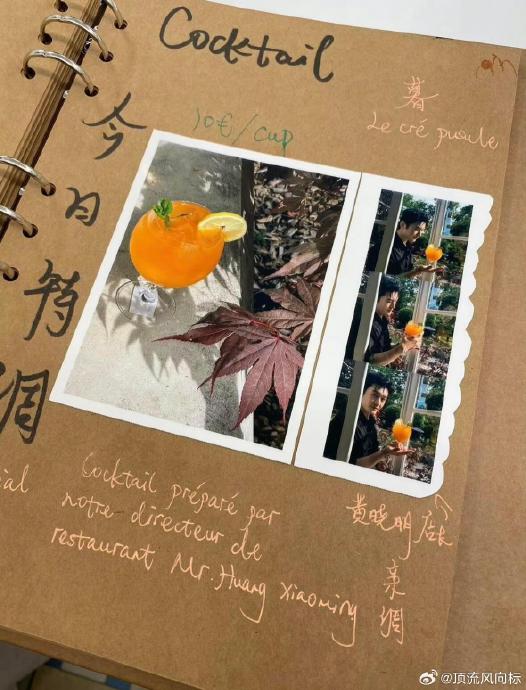 Cocktail
今日特调
10€/cup
暮
Le cré puscule
Cocktail préparé par
notre directeur de
restaurant Mr. Huang Xiaoming
黄晓明
店长
亲调
@顶流风向标